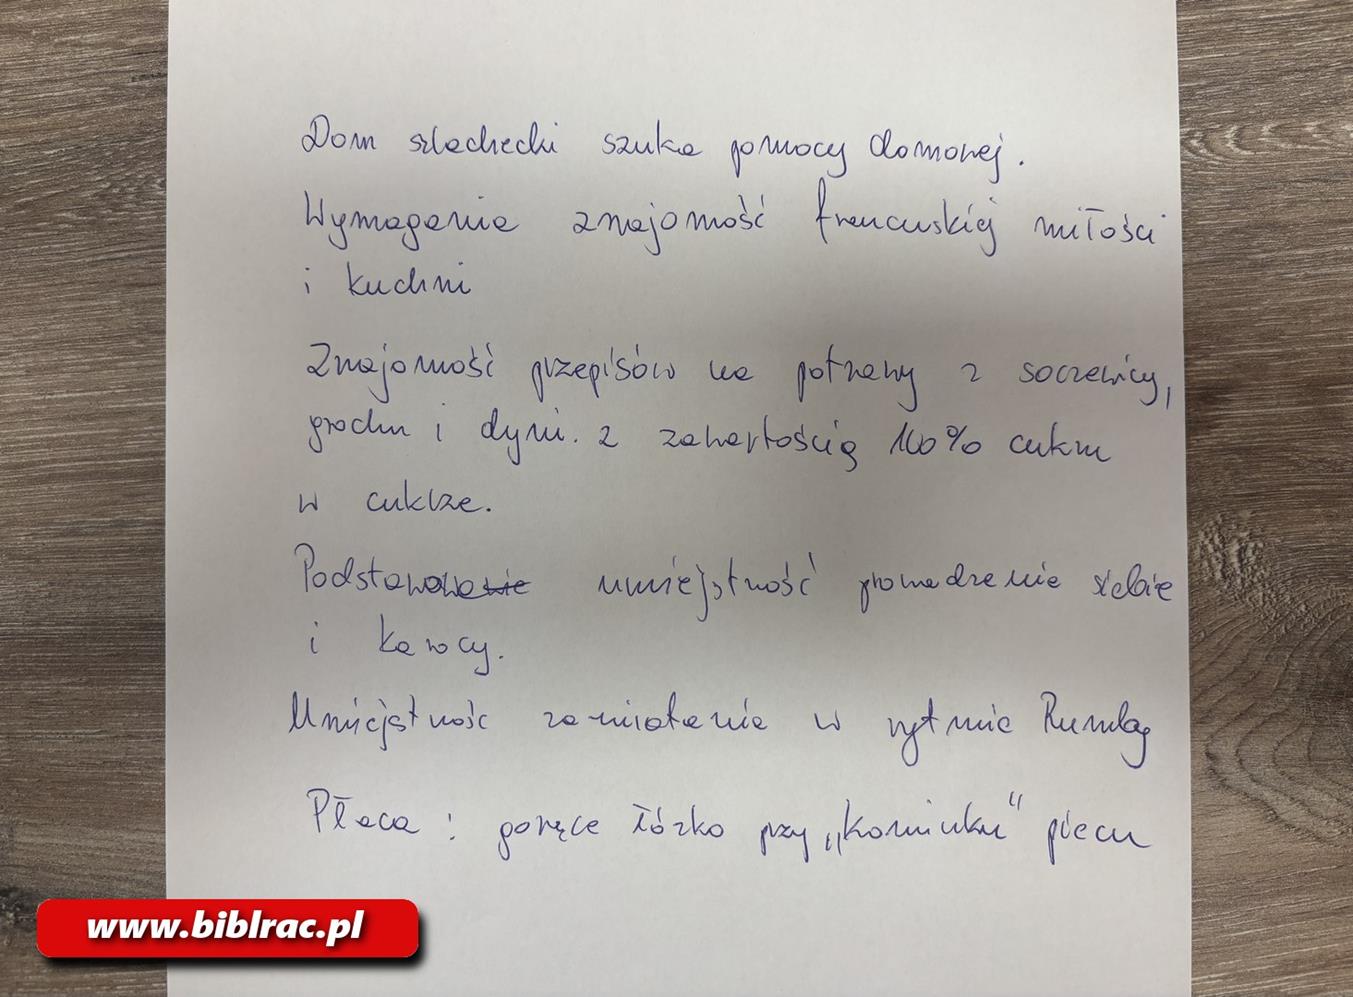 Dom szlachecki szuka pomocy domowej.
Wymagania znajomość francuskiej miłości
i kuchni
Znajomość przepisów na potrawy z soczewicy,
grochu i dyni. z zawartością 100% cukru
w cukrze.
umiejstność prowadzenia siebie
i karocy.
Umiejstność zamiatania w rytmie Rumbą
Płaca : gorące łóżko przy „kominku" piecu
www.biblrac.pl